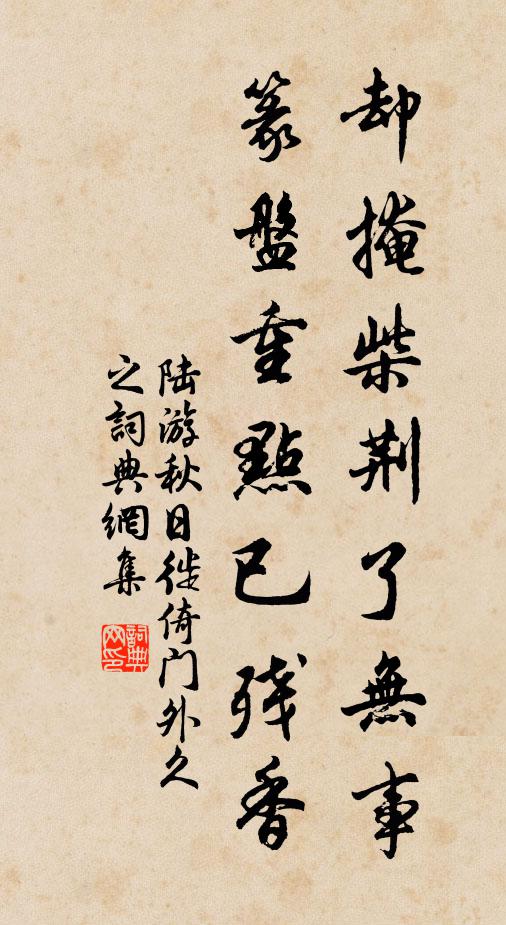 却掩柴荆了無事
篆盤重點已残香
陆游秋日徙倚门外久
之詞典網集
詞典網印